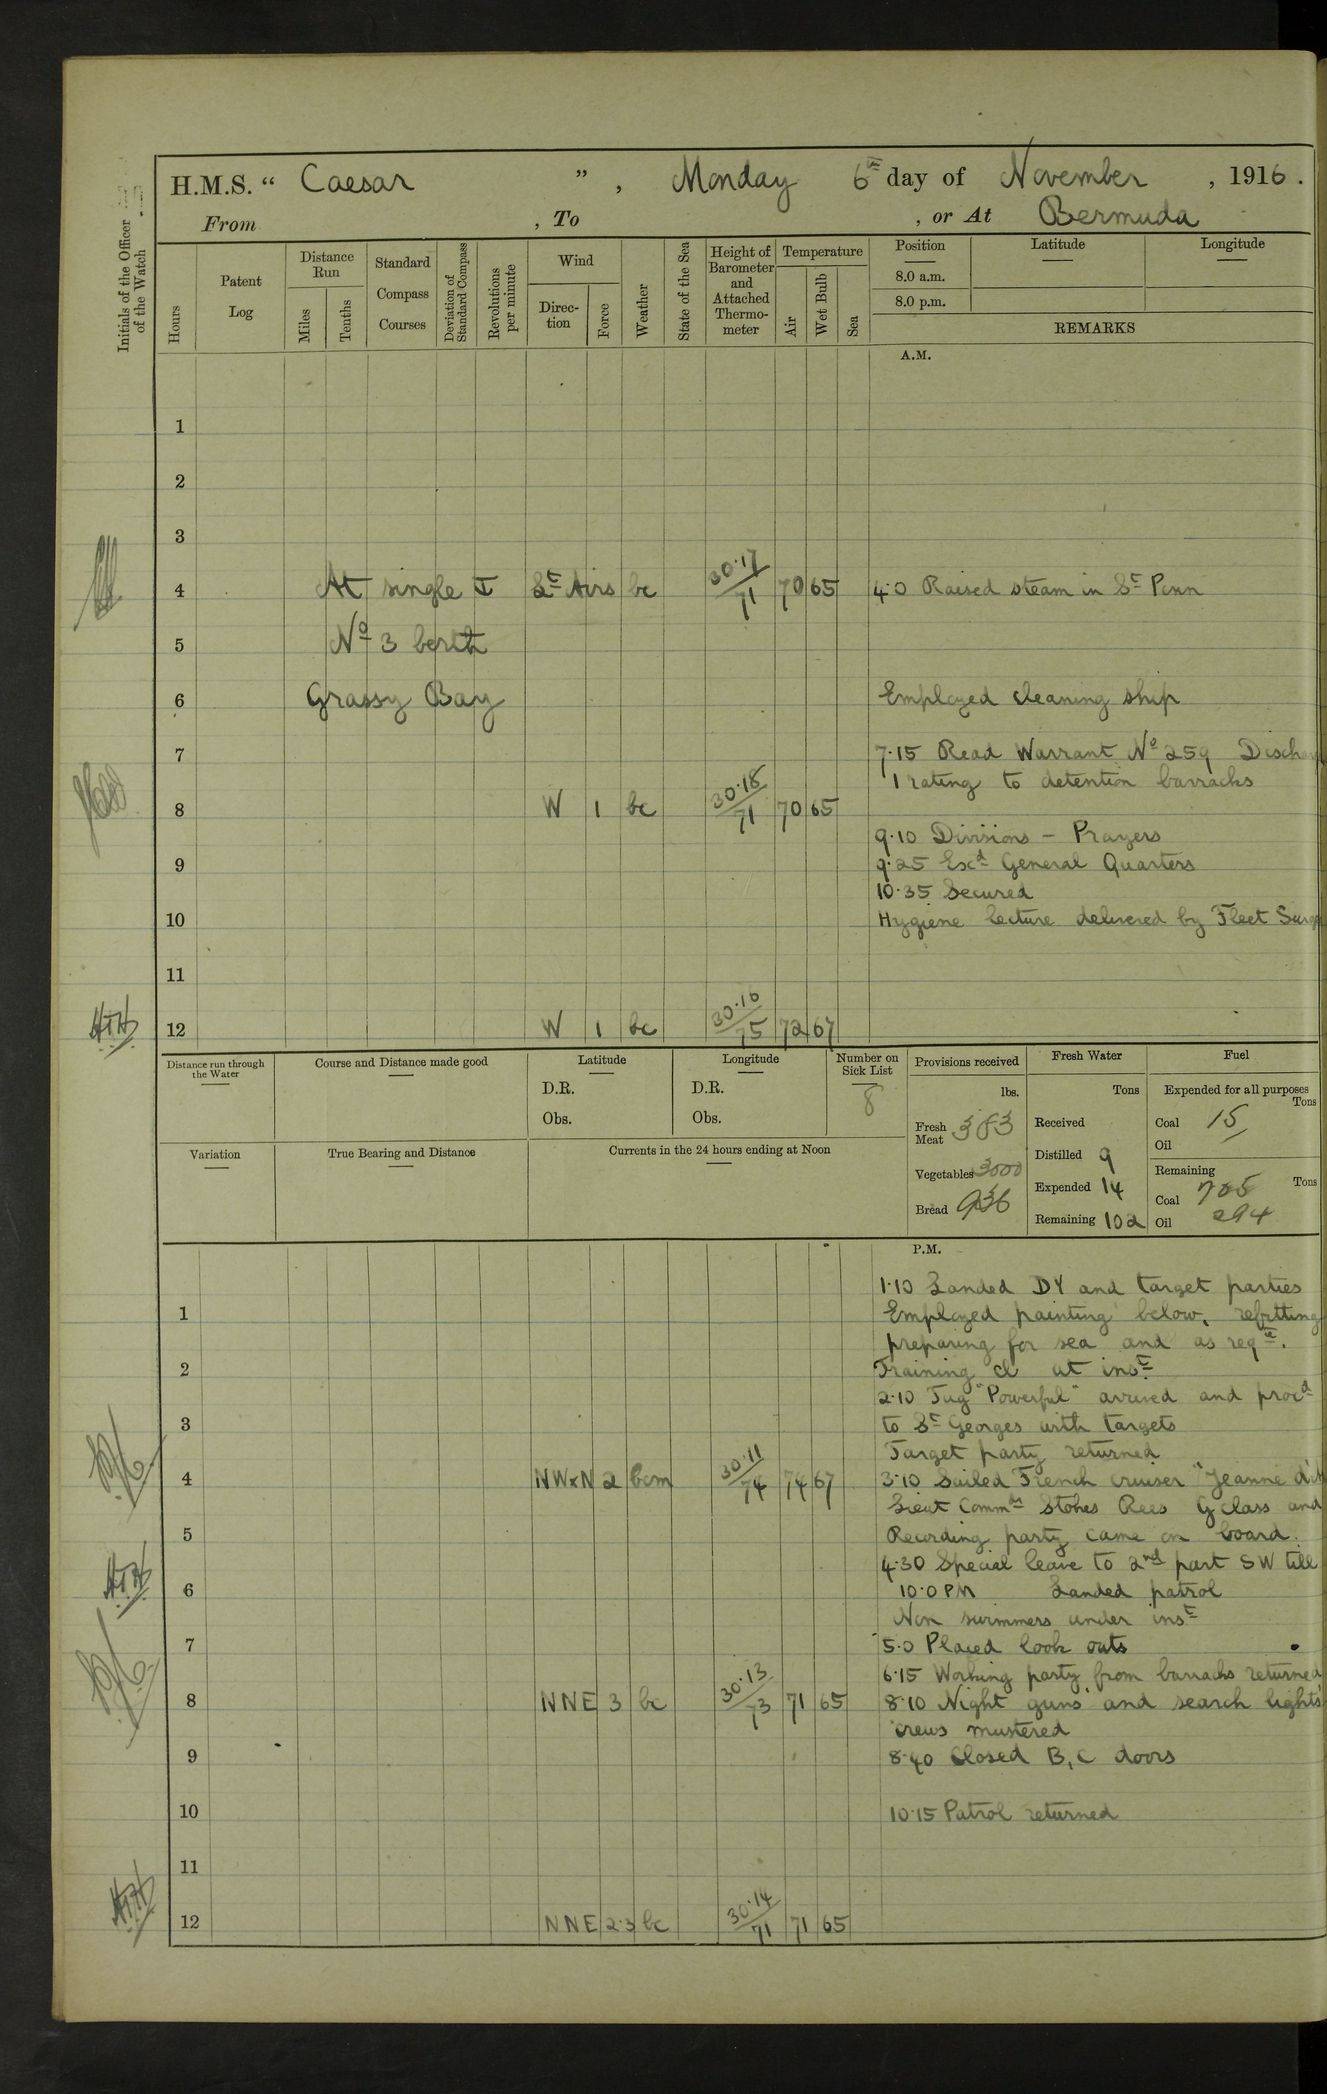 H.M.S. “ Caesar ” , Monday 6th day of November , 1916 .
From , To , or At Bermuda
Initials of the Officer of the Watch
Hours
Patent Log
Distance Run
Miles
Tenths
Standard Compass Courses
Deviation of Standard Compass
Revolutions per minute
Wind
Direction
Force
Weather
State of the Sea
Height of Barometer and Attached Thermometer
Temperature
Air
Wet Bulb
Sea
Position
8.0 a.m.
8.0 p.m.
Latitude
Longitude
REMARKS
A.M.
1
2
3
4 At single Lt Airs bc 30·17/71 70 65 4·0 Raised steam in St Pinn
5 No 3 berth
6 Grassy Bay Employed cleaning ship
7 7·15 Read Warrant No 259
1 rating to detention barracks
8 W 1 bc 30·18/71 70 65
9·10 Divisions – Prayers
9 9·25 Exd General Quarters
10·35 Secured
10 Hygiene lecture delivered by Fleet
11
12 W 1 bc 30·16/75 72 67
Distance run through the Water
Course and Distance made good
Latitude
D.R.
Obs.
Longitude
D.R.
Obs.
Number on Sick List
8
Provisions received
lbs.
Fresh Meat 383
Vegetables 3000
Bread 936
Fresh Water
Tons
Received
Distilled 9
Expended 14
Remaining 102
Fuel
Expended for all purposes
Tons
Coal 15
Oil
Remaining
Tons
Coal 705
Oil 294
Variation
True Bearing and Distance
Currents in the 24 hours ending at Noon
P.M.
1·10 Landed DY and target parties
1 Employed painting below, refitting
preparing for sea and as reqte.
2 Training cl at inst
2·10 Tug "Powerful" arrived and procd
3 to St Georges with targets
Target party returned
4 NWxN 2 bcm 30·11/74 74 67 3·10 Sailed French cruiser "Jeanne
Lieut Commrs Stokes Rees G class and
5 Recording party came on board.
4·30 Special leave to 2nd part SW till
6 10·0 PM Landed patrol
Non swimmers under inst
7 5·0 Placed look outs
6·15 Working party from barracks returned
8 NNE 3 bc 30·13/73 71 65 8·10 Night guns and search lights
crews mustered
9 8·40 Closed B, C doors
10 10·15 Patrol returned
11
12 NNE 2·3 bc 30·14/71 71 65